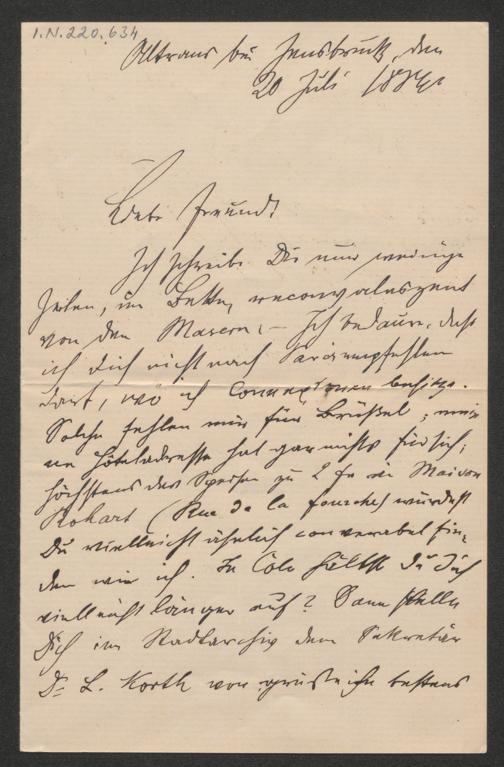 I.N. 220.634
Altrans bei Innsbruck, den
20 Juli 188
Lieber Freund!
Ich schreibe Dir nur wenige
Zeilen, im Bette, reconvaleszent
von den Masern. – Ich bedaure, daß
ich Dich nicht nach Paris empfehlen
darf, wo ich Connexionen besitze.
Solche fehlen mir für Brüßel; mei-
ne Hôteladresse hat gar nichts für sich;
höchstens das Speisen zu 2 fr in Maison
Rohart (Rue de la fourche) würdest
Du vielleicht ähnlich convenabel fin-
den wie ich. In Cöln hältst Du Dich
vielleicht länger auf? Dann stelle
Dich im Stadtarchiv dem Sekretär
Dr L. Korth vor, grüße ihn bestens